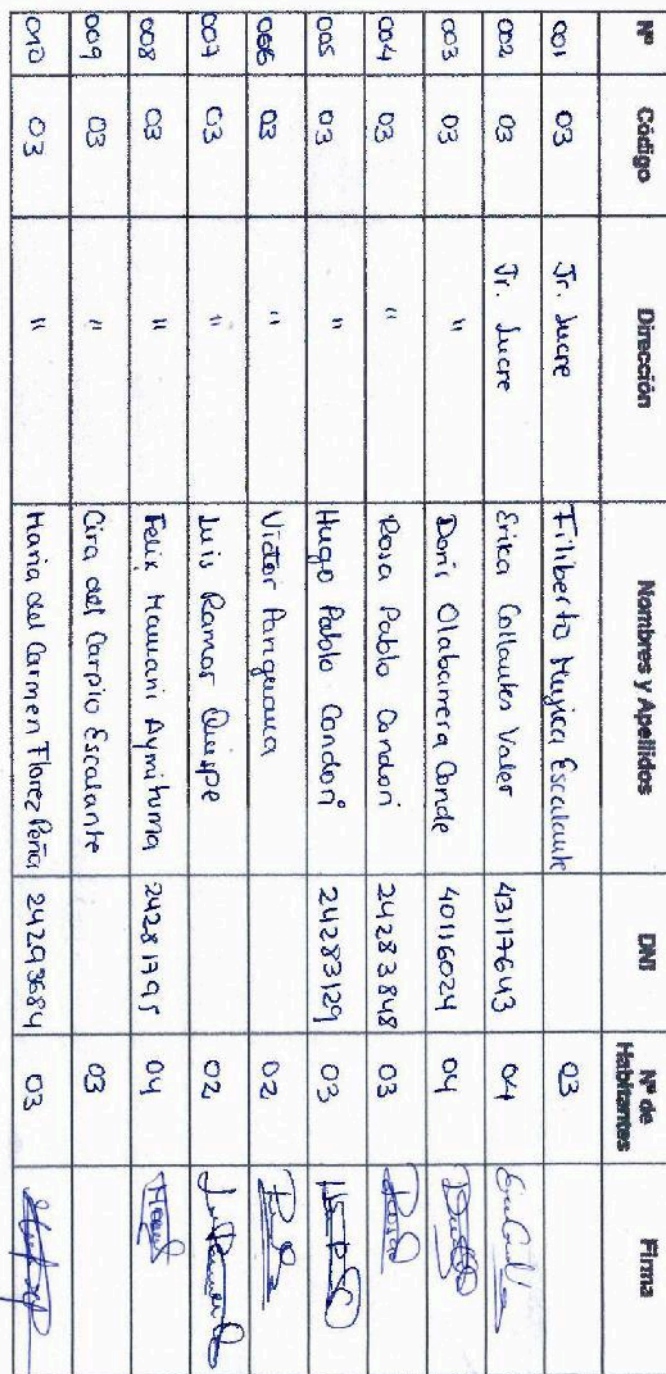 Nº Código Dirección Nombres y Apellidos DNI Nº de Habitantes Firma
001 03 Jr. Sucre Filiberto Mujica Escalante 03
002 03 Jr. Sucre Erika Collantes Valer 43117643 04
003 03 " Doris Olabarrera Conde 40116024 04
004 03 " Rosa Pablo Condori 24283848 03
005 03 " Hugo Pablo Condori 24283129 03
006 03 " Victor Panguana 02
007 03 " Luis Ramos Quispe 02
008 03 " Felix Mamani Aymituma 24281795 04
009 03 " Cira del Carpio Escalante 03
010 03 " Maria del Carmen Florez Peña 24293684 03